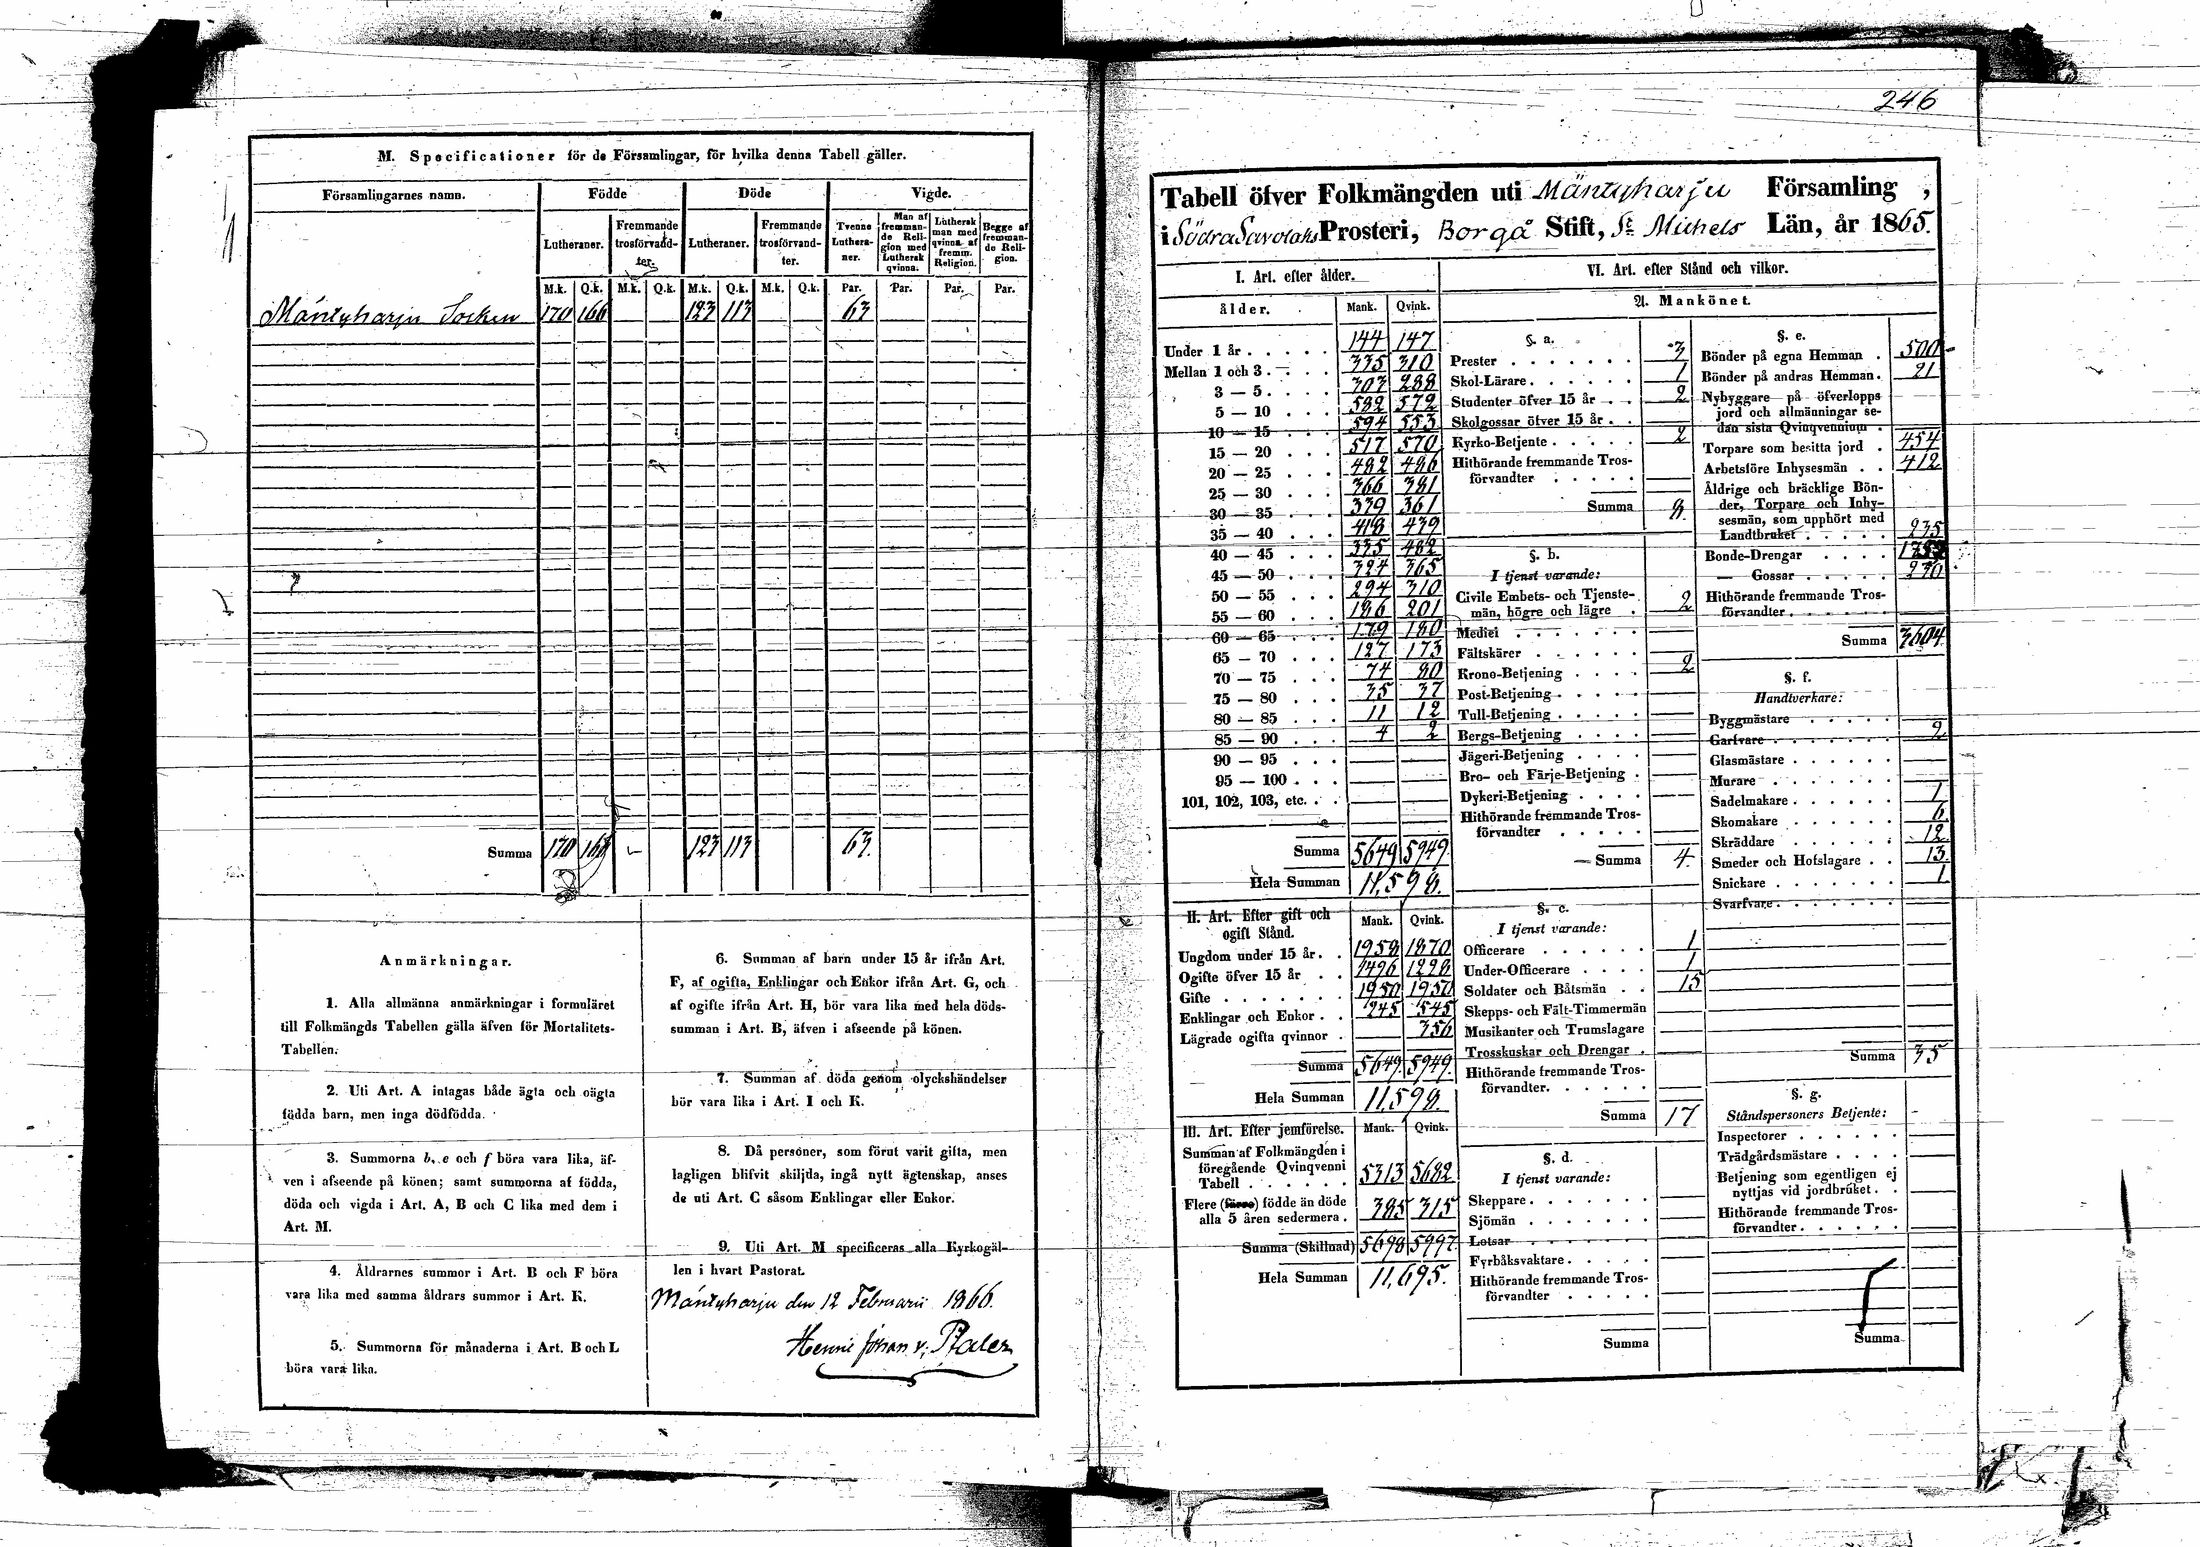 M. Specificationer för de Församlingar, för hvilka denna Tabell gäller.
Församlingarnes namn.
Födde
Döde
Vigde.
Lutheraner.
Fremmande trosförvandter.
Lutheraner.
Fremmande trosförvandter.
Tvenne Lutheraner.
Man af fremmande Religion med Luthersk qvinna.
Luthersk man med qvinna af fremm. Religion.
Begge af fremmande Religion.
M.k. Q.k. M.k. Q.k. M.k. Q.k. M.k. Q.k. Par. Par. Par. Par.
Mäntyharju Socken 170 166 123 113 63
Summa 170 166 123 113 63.
Anmärkningar.
1. Alla allmänna anmärkningar i formuläret
till Folkmängds Tabellen gälla äfven för Mortalitets-
Tabellen.
2. Uti Art. A intagas både ägta och oägta
födda barn, men inga dödfödda.
3. Summorna b, e och f böra vara lika, äf-
ven i afseende på könen; samt summorna af födda,
döda och vigda i Art. A, B och C lika med dem i
Art. M.
4. Åldrarnes summor i Art. B och F böra
vara lika med samma åldrars summor i Art. K.
5. Summorna för månaderna i Art. B och L
böra vara lika.
6. Summan af barn under 15 år ifrån Art.
F, af ogifta, Enklingar och Enkor ifrån Art. G, och
af ogifte ifrån Art. H, bör vara lika med hela döds-
summan i Art. B, äfven i afseende på könen.
7. Summan af döda genom olyckshändelser
bör vara lika i Art. I och K.
8. Då personer, som förut varit gifta, men
lagligen blifvit skiljda, ingå nytt ägtenskap, anses
de uti Art. C såsom Enklingar eller Enkor.
9. Uti Art. M specificeras alla Kyrkogäl-
len i hvart Pastorat.
Mäntyharju den 12 Februarii 1866.
Henric Johan v. Pfaler
246
Tabell öfver Folkmängden uti Mäntyharju Församling,
i Södra Savolaks Prosteri, Borgå Stift, St Michels Län, år 1865.
I. Art. efter ålder.
ålder. Mank. Qvink.
Under 1 år 144 147
Mellan 1 och 3 335 310
3 — 5 303 288
5 — 10 582 572
10 — 15 594 553
15 — 20 517 570
20 — 25 482 486
25 — 30 366 381
30 — 35 339 361
35 — 40 418 439
40 — 45 335 402
45 — 50 324 365
50 — 55 294 310
55 — 60 186 201
60 — 65 179 180
65 — 70 127 173
70 — 75 74 80
75 — 80 35 37
80 — 85 11 12
85 — 90 4 2
90 — 95
95 — 100
101, 102, 103, etc.
Summa 5649 5949
Hela Summan 11,598.
II. Art. Efter gift och ogift Stånd. Mank. Qvink.
Ungdom under 15 år 1958 1870
Ogifte öfver 15 år 1496 1228
Gifte 1950 1950
Enklingar och Enkor 245 545
Lägrade ogifta qvinnor 356
Summa 5649 5949
Hela Summan 11,598.
III. Art. Efter jemförelse. Mank. Qvink.
Summan af Folkmängden i
föregående Qvinqvenni
Tabell 5313 5682
Flere (färre) födde än döde
alla 5 åren sedermera 385 315
Summa (Skillnad) 5698 5997
Hela Summan 11,695.
VI. Art. efter Stånd och vilkor.
A. Mankönet.
§. a.
Prester 3
Skol-Lärare 1
Studenter öfver 15 år 2
Skolgossar öfver 15 år
Kyrko-Betjente 2
Hithörande fremmande Tros-
förvandter
Summa 8.
§. b.
I tjenst varande:
Civile Embets- och Tjenste-
män, högre och lägre 2
Medici
Fältskärer
Krono-Betjening 2
Post-Betjening
Tull-Betjening
Bergs-Betjening
Jägeri-Betjening
Bro- och Färje-Betjening
Dykeri-Betjening
Hithörande fremmande Tros-
förvandter
Summa 4.
§. c.
I tjenst varande:
Officerare 1
Under-Officerare 1
Soldater och Båtsmän 15
Skepps- och Fält-Timmermän
Musikanter och Trumslagare
Trosskuskar och Drengar
Hithörande fremmande Tros-
förvandter.
Summa 17
§. d.
I tjenst varande:
Skeppare
Sjömän
Lotsar
Fyrbåksvaktare
Hithörande fremmande Tros-
förvandter
Summa
§. e.
Bönder på egna Hemman 500
Bönder på andras Hemman 21
Nybyggare på öfverlopps
jord och allmänningar se-
dan sista Qvinqvennium
Torpare som besitta jord 454
Arbetsföre Inhysesmän 412
Åldrige och bräcklige Bön-
der, Torpare och Inhy-
sesmän, som upphört med
Landtbruket 235
Bonde-Drengar
— Gossar 230
Hithörande fremmande Tros-
förvandter
Summa 3604.
§. f.
Handtverkare:
Byggmästare
Garfvare 2
Glasmästare
Murare
Sadelmakare 1
Skomakare 6
Skräddare 12
Smeder och Hofslagare 13
Snickare 1
Svarfvare
Summa 35
§. g.
Ståndspersoners Betjente:
Inspectorer
Trädgårdsmästare
Betjening som egentligen ej
nyttjas vid jordbruket
Hithörande fremmande Tros-
förvandter
Summa